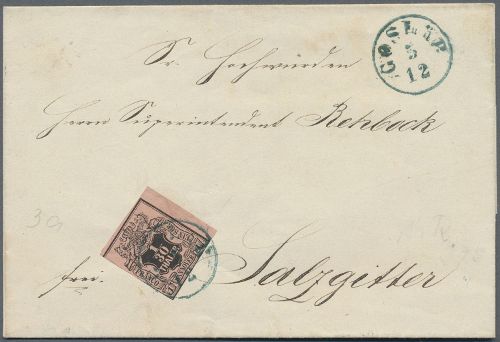 GOSLAR
5
12
Sr. Hochwürden
Herrn Superintendent Rehbock
3a
1/30
THALER
frei.
Salzgitter